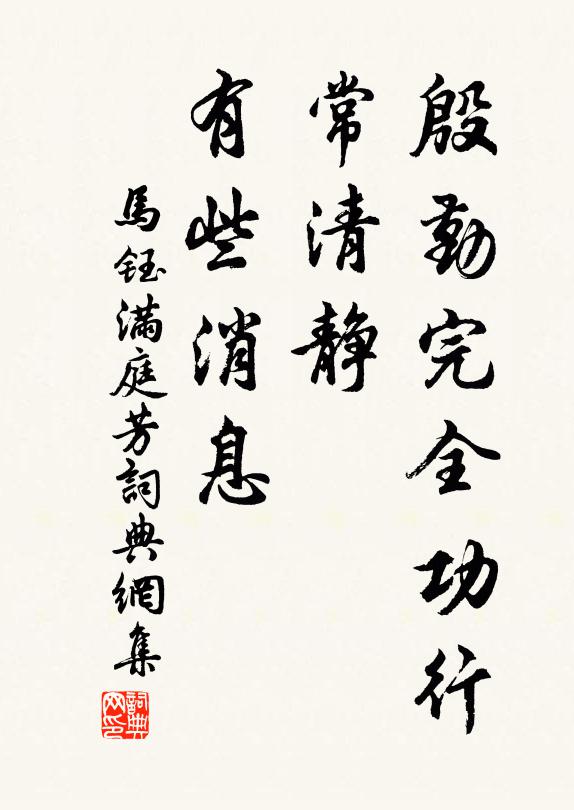 殷勤完全功行
常清靜
有些消息
馬鈺滿庭芳詞典網集
詞典網印